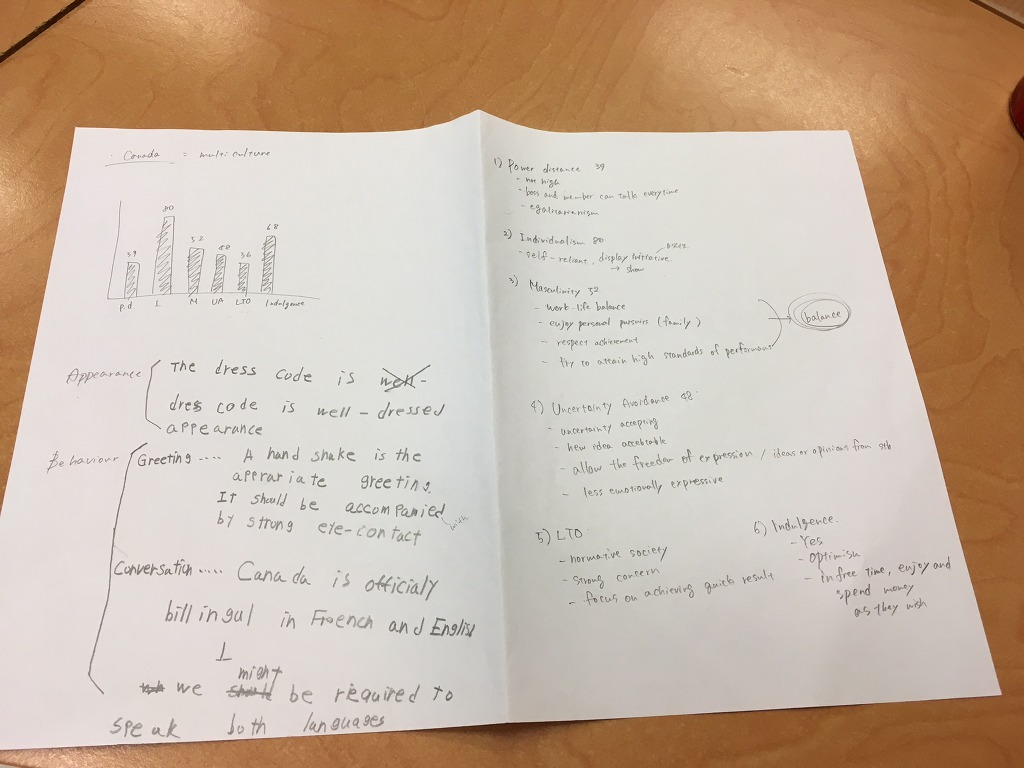 Canada = multi culture
80
68
52
48
39
36
P.d I M UA LTO Indulgence
Appearance
The dress code is well-
dress code is well-dressed
appearance
Behaviour
Greeting .... A hand shake is the
apprariate greeting.
It should be accompanied
by strong eye-contact
Conversation .... Canada is officialy
billingul in French and English
might
we should be required to
speak both languages
1) Power distance 39
- not high
- boss and member can talk everytime
- egalitarianism
2) Individualism 80
- self-reliant, display initiative
→ show
3) Masculinity 52
- work-life balance
- enjoy personal pursuits (family)
- respect achievement
- try to attain high standards of performant
balance
4) Uncertainty Avoidance 48:
- uncertainty accepting
- new idea acceptable
- allow the freedom of expression / ideas or opinions from stb
- less emotionally expressive
5) LTO:
- normative society
- strong concern
- focus on achieving quick result
6) Indulgence.
- Yes
- optimism
- in free time, enjoy and
spend money
as they wish